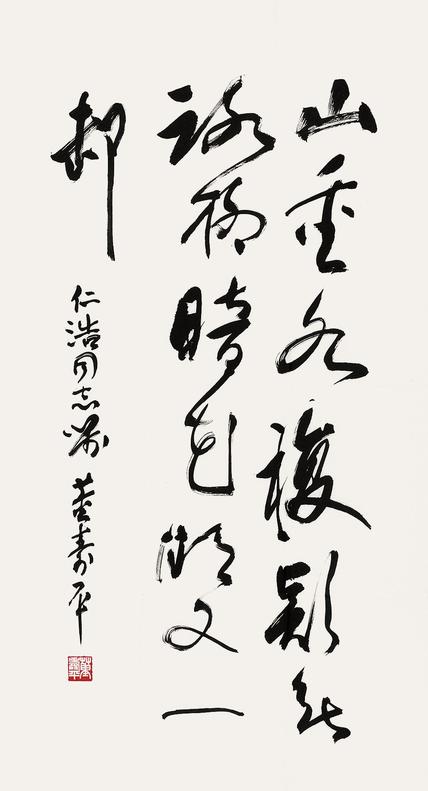 山重水複疑无
路柳暗花明又一
邨
仁浩同志嘱 董寿平